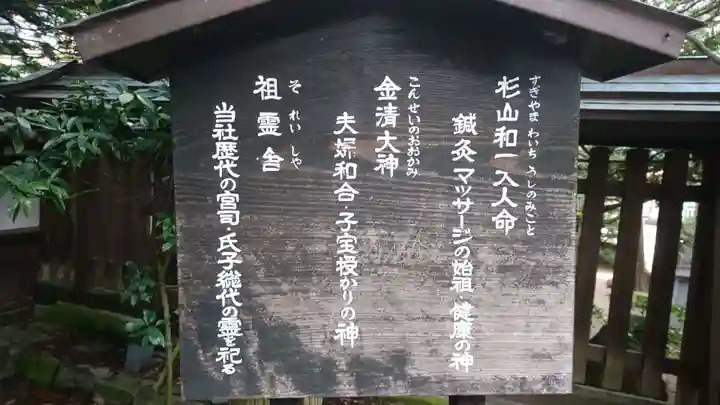 すぎやま わいち うしのみこと
杉山和一大人命
鍼灸マッサージの始祖・健康の神
こんせいのおおかみ
金清大神
夫婦和合・子宝授かりの神
それいしゃ
祖霊舎
当社歴代の宮司・氏子総代の霊を祀る